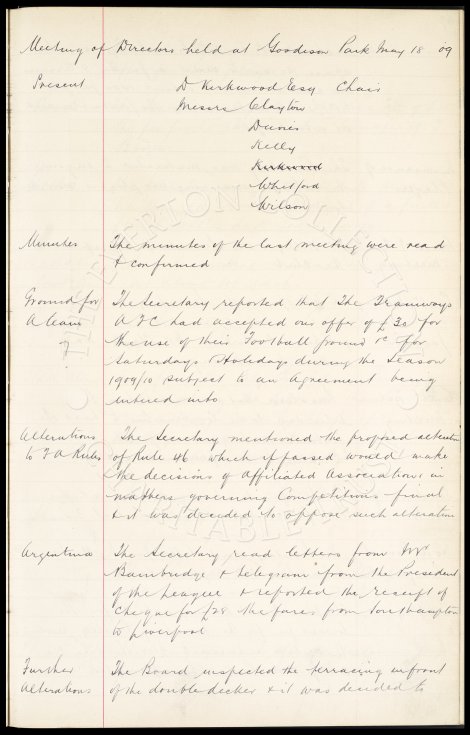 Meeting of Directors held at Goodison Park May 18 09
Present D Kirkwood Esq Chair
Messrs Clayton
Davies
Kelly
Kirkwood
Whitford
Wilson
Minutes The minutes of the last meeting were read
& confirmed
Ground for The Secretary reported that The Tramways
A Team A F C had accepted our offer of £30 for
the use of their Football ground &c for
Saturdays & Holidays during the Season
1909/10 subject to an Agreement being
entered into
Alterations The Secretary mentioned the proposed alteration
to F A Rules of Rule 46 which if passed would make
the decisions of Affiliated Associations in
matters governing Competitions final
& it was decided to oppose such alteration
Argentina The Secretary read letters from Mr
Bainbridge & telegram from the President
of the League & reported the receipt of
cheque for £28 the fares from Southampton
to Liverpool
Further The Board inspected the terracing infront
Alterations of the double decker & it was decided to
THE EVERTON COLLECTION
CHARITABLE